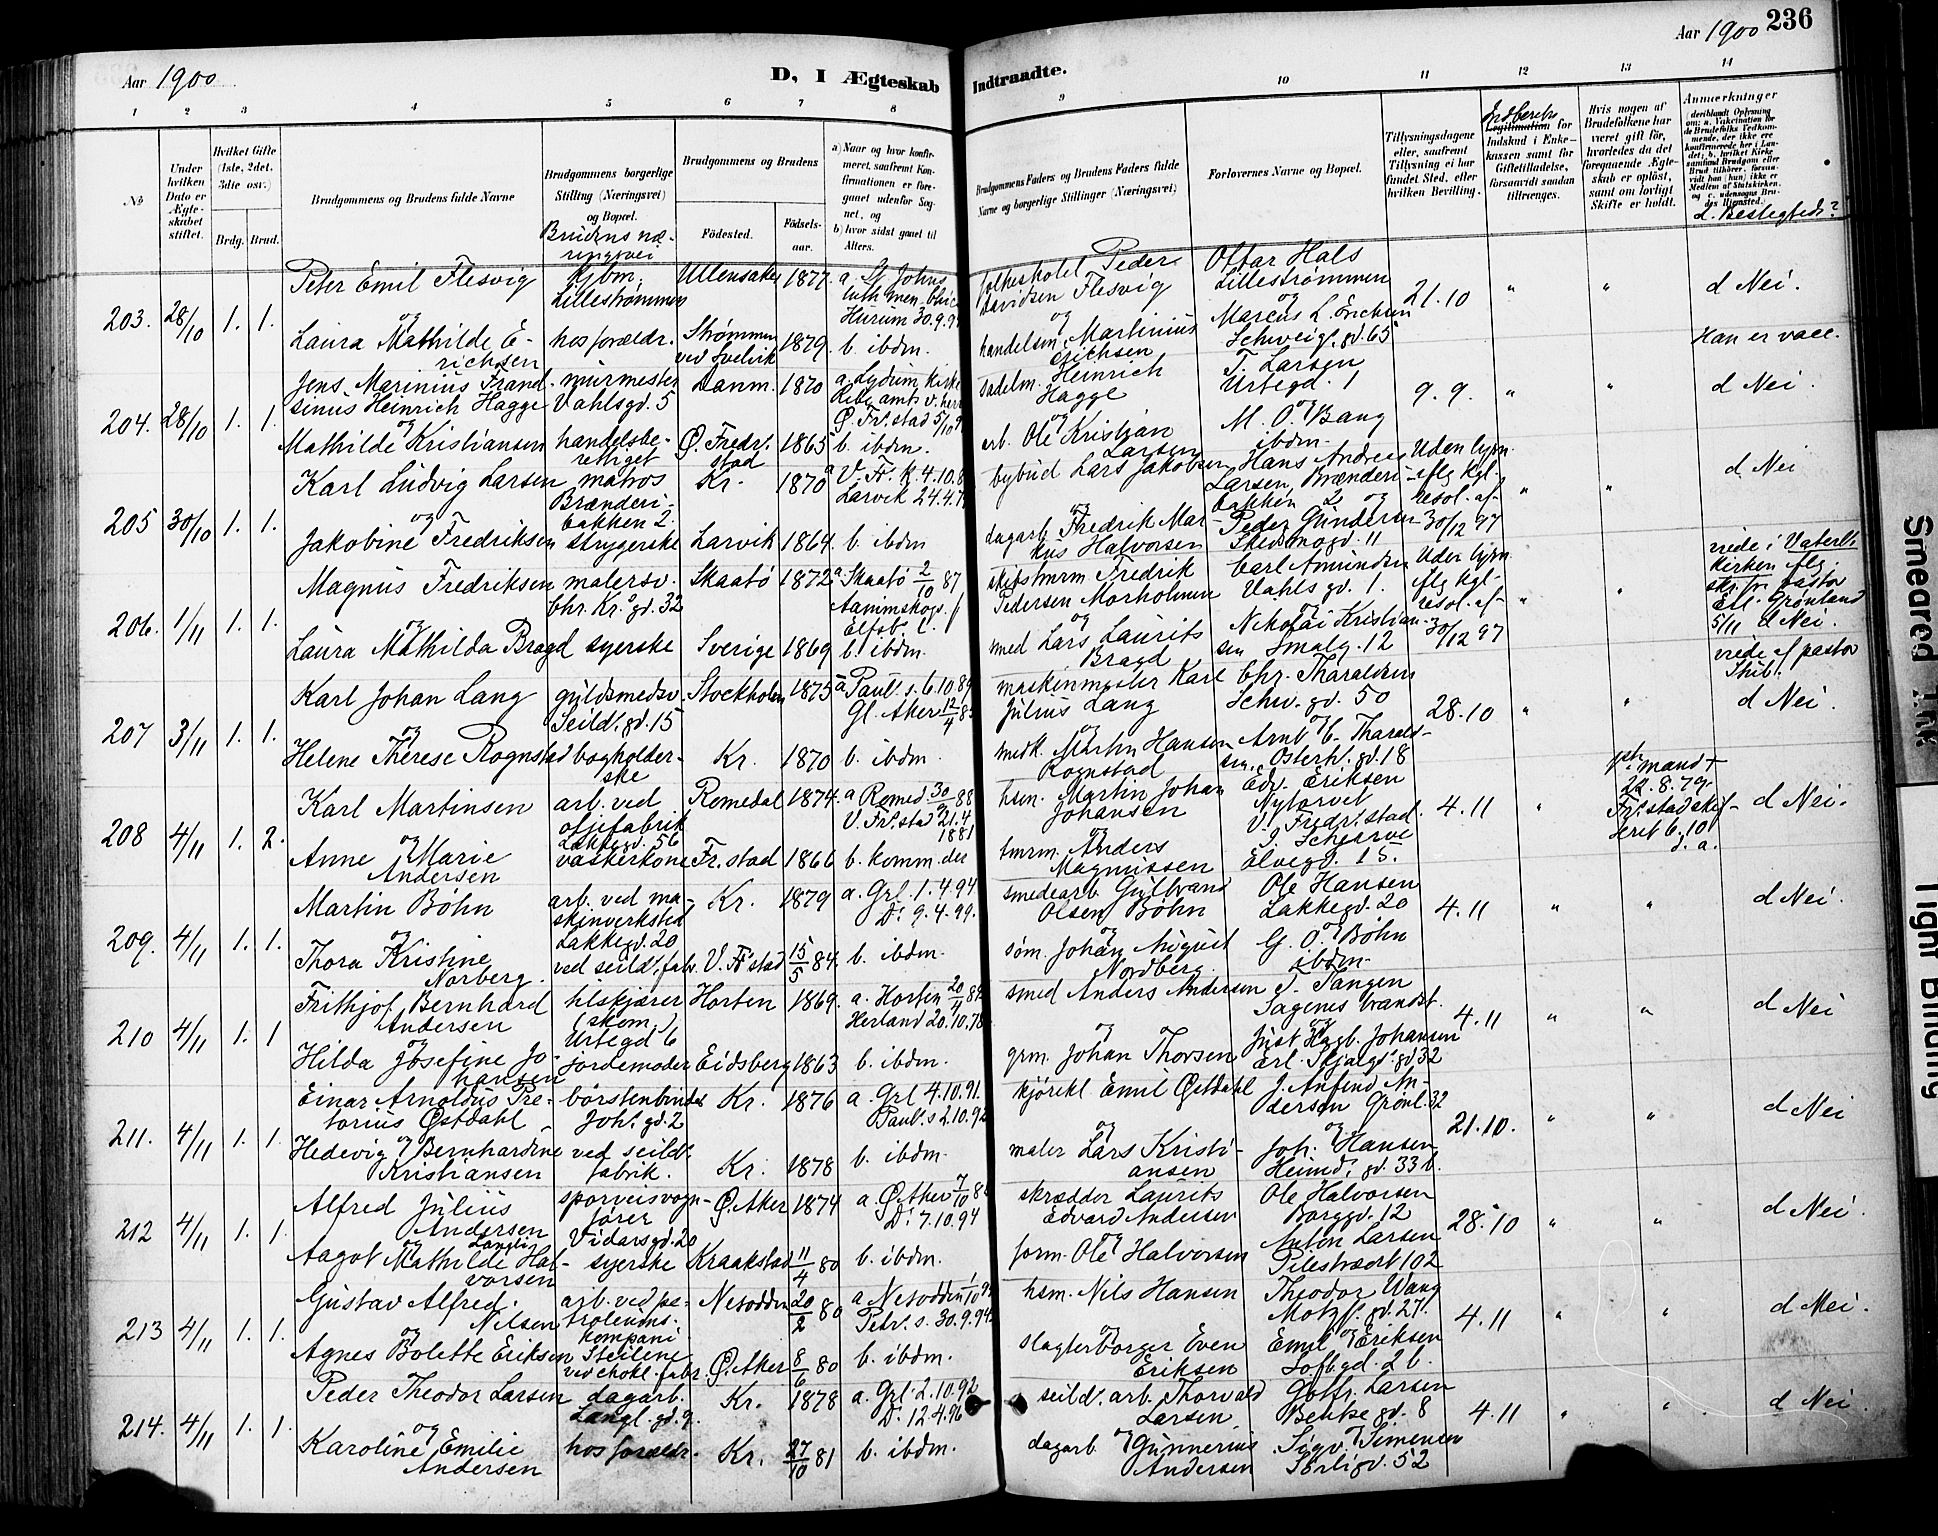 Aar 1900
D, I Ægteskab
Indtraadte.
Aar 1900 236
1 2 3 4 5 6 7 8
9 10 11 12 13 14
No
Under hvilken Dato er Ægteskabet stiftet.
Hvilket Gifte (1ste, 2det, 3dte osv.)
Brdg. Brud.
Brudgommens og Brudens fulde Navne
Brudgommens borgerlige Stilling (Næringsvei) og Bopæl.
Brudens næringsvei
Brudgommens og Brudens
Fødested. Fødselsaar.
a) Naar og hvor konfirmeret, saafremt Konfirmationen er foregaaet udenfor Sognet, og
b) hvor sidst gaaet til Alters.
Brudgommens Faders og Brudens Faders fulde Navne og borgerlige Stillinger (Næringsvei)
Forlovernes Navne og Bopæl.
Tillysningsdagene eller, saafremt Tillysning ei har fundet Sted, efter hvilken Bevilling.
Legitimation for Indskud i Enkekassen samt for Giftetilladelse, forsaavidt saadan tiltrænges.
Hvis nogen af Brudefolkene har været gift før, hvorledes da det foregaaende Ægteskab er opløst, samt om lovligt Skifte er holdt.
Anmerkninger
d. Beslegtede?
203. 28/10 1. 1.
Peter Emil Flesvig
kjbm. Lillestrømmen
Ullensaker 1877
Hurum 30.9.
Peder Davidsen Flesvig
Ottar Hals Lillestrømmen
21.10
d Nei.
og
Laura Mathilde Erichsen
hos forældr.
Strømmen ved Svelvik 1879. b. ibdm.
handelsm. Martinius Erichsen
og Marcus L. Erichsen
Schweig. gd. 65
Han er vacc.
204. 28/10 1. 1.
Jens Marinius Frandsinus Heinrich Hagge
murmester Vahlsgd. 5
Danm. 1870
a. Lydum Kirke Ribe amt
sadelm. Heinrich Hagge
T. Larsen Urtegd. 1
9. 9.
d Nei.
og
Mathilde Kristiansen
handelsberettiget
Ø. Fredr.stad 1865 b. ibdm.
arb. Ole Kristian Larsen
M. O. Bang ibdm.
205 30/10 1. 1.
Karl Ludvig Larsen
matros Brænderibakken 2.
Kr. 1870
Larvik 24.4.
bybud Lars Jakobsen
Hans Andreas Larsen, Brænderibakken 2 og
Uden lysn. iflg kgl. resol. af 30/12 97
d Nei
og
Jakobine Fredriksen strygerske
Larvik 1864. b. ibdm
dagarb. Fredrik Markus Halvorsen
Peder Gundersen Skedsmogd. 11
206. 1/11 1. 1.
Magnus Fredriksen
malersv. Chr. Kr.s gd. 32
Skaatø 1872 a. Skaatø 2/10 87
skibstmrm. Fredrik Pedersen Morholmen
Carl Amundsen Vahls gd. 1.
Uden lysn. iflg kgl. resol. af 30/12 97
viede i Vaterl. Kirken
5/11 d Nei.
og
Laura Mathilda Bragd syerske
Sverige 1869 b. ibdm.
Lars Laurits Bragd
Nikolai Kristiansen Smalg. 12
viede af pastor
207 3/11 1. 1.
Karl Johan Lang
guldsmedsv. Seild. gd. 15
Stockholm 1875 a Paul. s. 6.10.89
Gl. Aker 12/4
maskinmester Karl Julius Lang
Chr. Tharaldsen Schw. gd. 50
28.10
d Nei.
og
Helene Therese Rognstad bogholderske
Kr. 1870 b. ibdm.
Martin Hansen Rognstad
Arnt H. Tharaldsen, Osterh. gd. 18
208 4/11 1. 2.
Karl Martinsen
arb. ved oljefabrik Lakkegd. 56
Romedal 1874. a Romed 30/9 88
V. Fr.stad 21.4 1881
hsm. Martin Johan Johansen
Edv. Eriksen Nytorvet V. Fredr.stad.
4.11
1ste mand + 22.8.79. Fr.stad skifteret 6.10 s. a.
d Nei.
og
Anne Marie Andersen
vaskerkone Fr.stad 1866 b. komm. der
tmrm. Anders Magnussen
Elvegd. 15.
209. 4/11 1. 1.
Martin Bøhn
arb. ved maskinverksted Lakkegd. 20
Kr. 1879 a. Grl. 1.4.94
Do. 9.4.99.
smedearb. Gulbrand Olsen Bøhn
Ole Hansen Lakkegd. 20
4.11
d Nei.
og
Thora Kristine Norberg.
ved seild. fabr. V. Fr.stad 15/5 84. b. ibdm.
søm. Johan August Nordberg.
G. O. Bøhn ibdm.
210 4/11 1. 1
Frithjof Bernhard Andersen
tilskjærer (skom.) Urtegd 6
Horten 1869. a. Horten 20/4
smed Anders Andersen
T. Tangen Sagenes brandst.
4.11
d Nei
og
Hilda Josefine Johansen
jordemoder Eidsberg 1863 b. ibdm.
grm. Johan Thorsen
Just Hagb. Johansen Erl. Skjalgs. gd 32
211. 4/11 1. 1.
Einar Arnoldus Pretorius Østdahl
børstenbinder Joh. gd. 2
Kr. 1876 a. Grl 4.10.91.
Paul. s 2.10.92
kjørekl Emil Østdahl
J. Anfind Andersen Grønl. 32
21.10.
d Nei
og
Hedevig Bernhardine Kristiansen
ved seild. fabrik.
Kr. 1878 b. ibdm.
maler Lars Kristiansen
Joh. Hansen Heimd. gd. 33 b.
212 4/11 1. 1.
Alfred Julius Andersen
sporveisvognfører Vidarsgd. 20
Ø. Aker 1874 a. Ø. Aker 7/10
Do. 7.10.94
skrædder Laurits Edvard Andersen
Ole Halvorsen Borggd. 12
28.10
d Nei.
og
Aagot Mathilde Halvorsen
syerske Kraakstad 11/4 80 b. ibdm.
form. Ole Halvorsen
Anton Larsen Pilestræde 102
213 4/11 1. 1.
Gustav Alfred Nilsen
arb. ved petroleumskompani Steilene
Nesodden 20/2 80 a Nesodden 1/10
Petr. s. 30.9.94.
hsm. Nils Hansen
Theodor Wang Motzf. gd. 27.
4.11
d Nei.
og
Agnes Bolette Eriksen
ved chokl. fabr. Ø. Aker 8/6 80 b. ibdm.
slagterborger Even Eriksen
Emil Eriksen Sofb. gd. 2 b.
214. 4/11 1. 1.
Peder Theodor Larsen
dagarb. Langl. gd. 9.
Kr. 1878 a. Grl. 2.10.92
Do. 12.4.96
seild. arb. Thorvald Larsen
Gottfr. Larsen Bentse gd. 8
4.11
d Nei
og
Karoline Emilie Andersen
hos forældr. Kr. 27/10 81 b. ibdm.
dagarb Gunnerius Andersen
Sigv. Simensen Sørligd. 52
Smeared Ink
Tight Binding